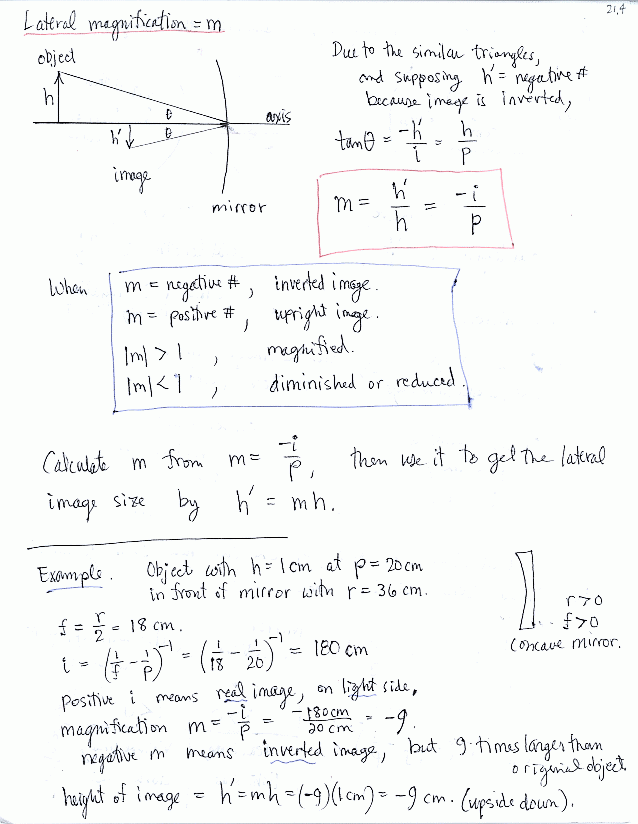 21.4
Lateral magnification = m
object
h
θ
θ
axis
h'
image
mirror
Due to the similar triangles,
and supposing h' = negative #
because image is inverted,
tanθ = -h'/i = h/p
m = h'/h = -i/p
When
m = negative #, inverted image.
m = positive #, upright image.
|m| > 1 , magnified.
|m| < 1 , diminished or reduced.
Calculate m from m = -i/p, then use it to get the lateral
image size by h' = mh.
Example. Object with h = 1cm at p = 20cm
in front of mirror with r = 36 cm.
r > 0
f > 0
Concave mirror.
f = r/2 = 18 cm.
i = (1/f - 1/p)^-1 = (1/18 - 1/20)^-1 = 180 cm
Positive i means real image, on light side,
magnification m = -i/p = -180cm/20cm = -9.
negative m means inverted image, but 9 times larger than
original object.
height of image = h' = mh = (-9)(1cm) = -9 cm. (upside down).